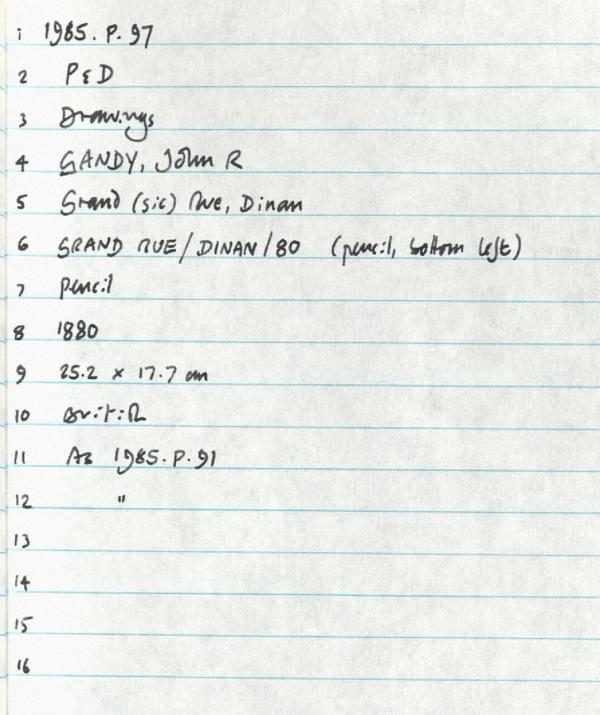 1 1985.P.97
2 P&D
3 Drawings
4 GANDY, John R
5 Grand (sic) Rue, Dinan
6 GRAND RUE/DINAN/80 (pencil, bottom left)
7 pencil
8 1880
9 25.2 x 17.7 cm
10 British
11 As 1985.P.91
12 "
13
14
15
16